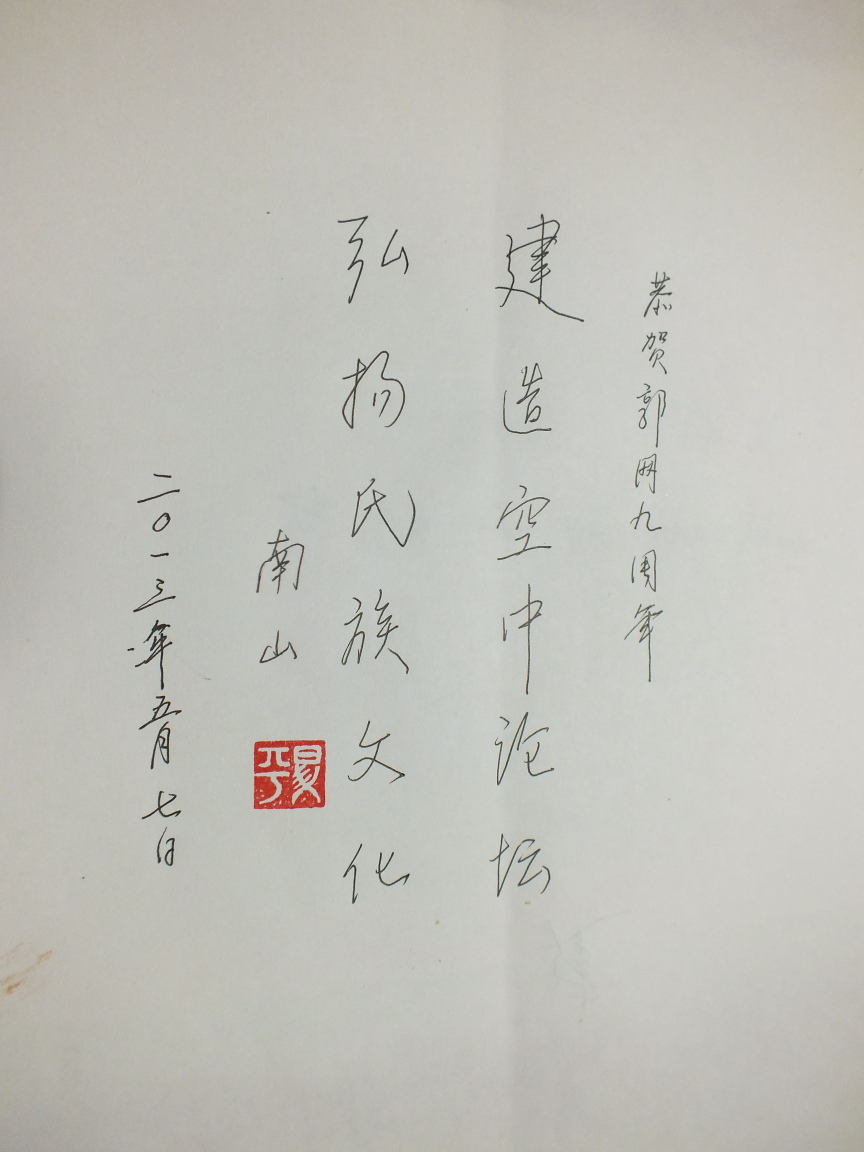 恭贺郭网九周年
建造空中论坛
弘扬民族文化
南山
二〇一三年五月七日